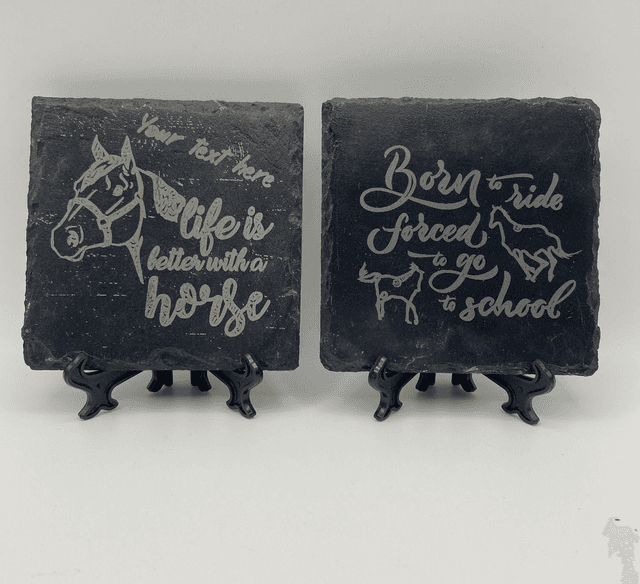 Your text here
life is
better with a
horse
Born to ride
forced
to go
to school